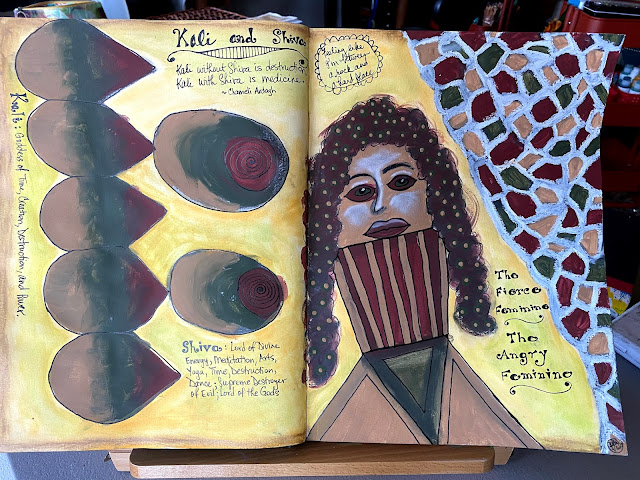 Kali and Shiva
Kali without Shiva is destruction
Kali with Shiva is medicine.
~ Chameli Ardagh
Kali: Goddess of Time, Creation, Destruction, and Power.
Shiva: Lord of Divine
Energy, Meditation, Arts,
Yoga, Time, Destruction,
Dance; Supreme Destroyer
of Evil; Lord of the Gods
Feeling like
I'm
a rock and
a hard place
The
Fierce
Feminine
The
Angry
Feminine